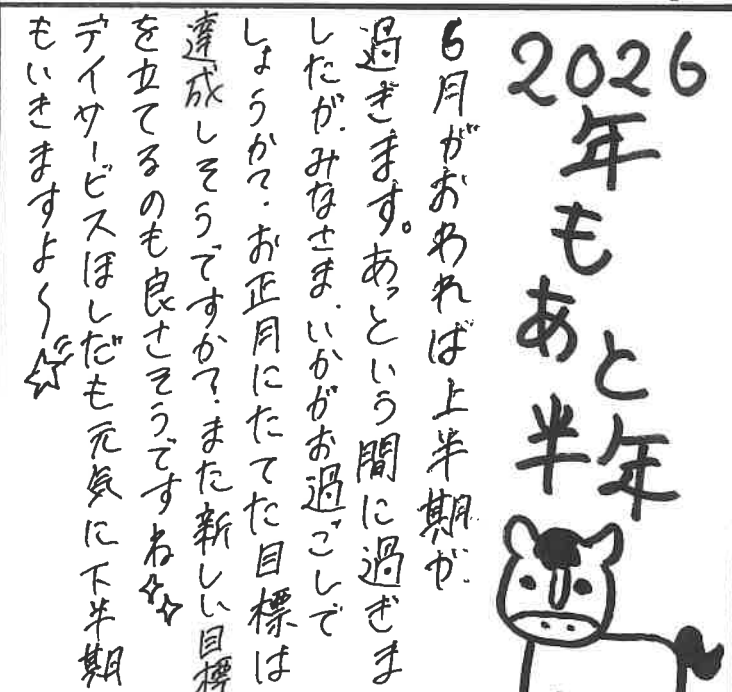 2026
年も
あと
半年
6月がおわれば上半期が
過ぎます。あっという間に過ぎま
したが、みなさま、いかがお過ごしで
しょうか？お正月にたてた目標は
達成しそうですか？また新しい目標
を立てるのも良さそうですね☆☆
デイサービスほしだも元気に下半期
もいきますよ〜☆